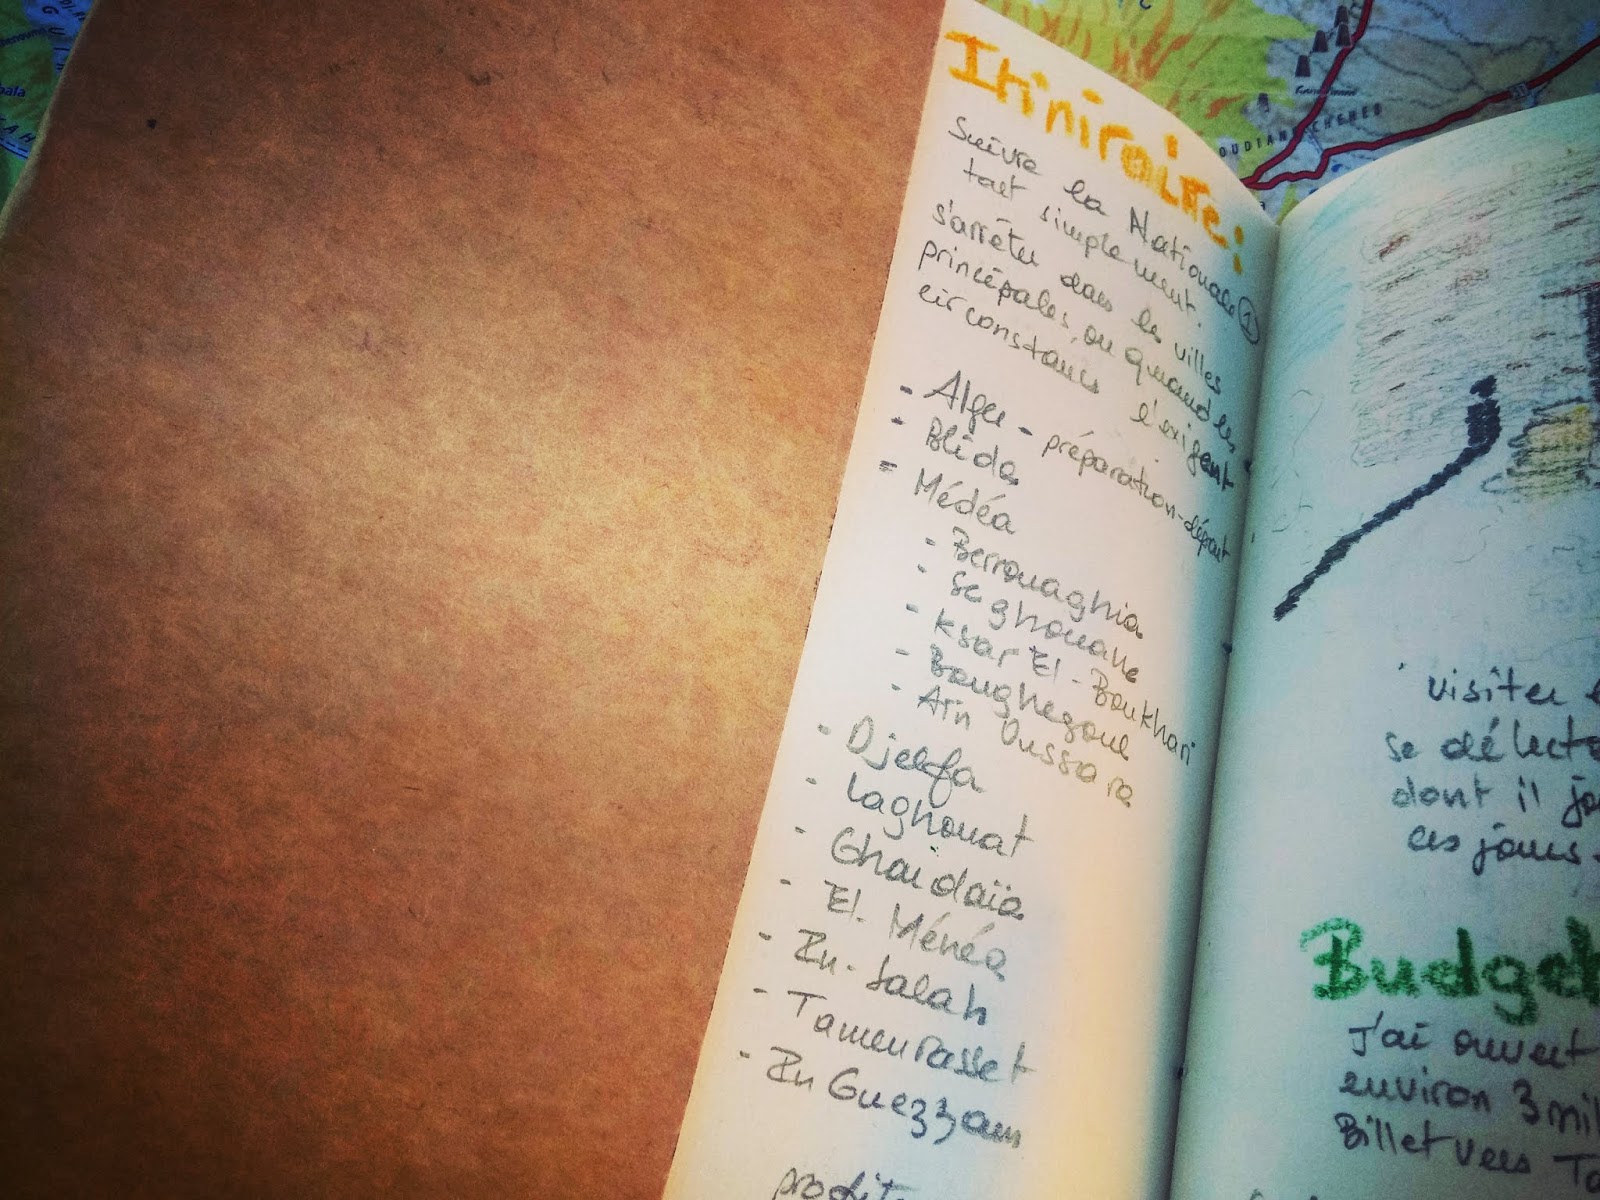 Itiniraire:
Suivre la Nationale 1
tout simplement.
s'arrêter dans les villes
principales, ou quand les
circonstances l'exigent
- Alger - préparation-départ
- Blida
- Médéa
- Berrouaghia
- Seghouane
- Ksar El-Boukhari
- Boughezoul
- Aïn Oussara
- Djelfa
- Laghouat
- Ghardaïa
- El. Ménéa
- In-Salah
- Tamenrasset
- In Guezzam
visiter
se délect
dont il
ces jours.
Budget
J'ai ouvert
environ 3 mil
Billet vers Ta
OUDIAN CHEHEB